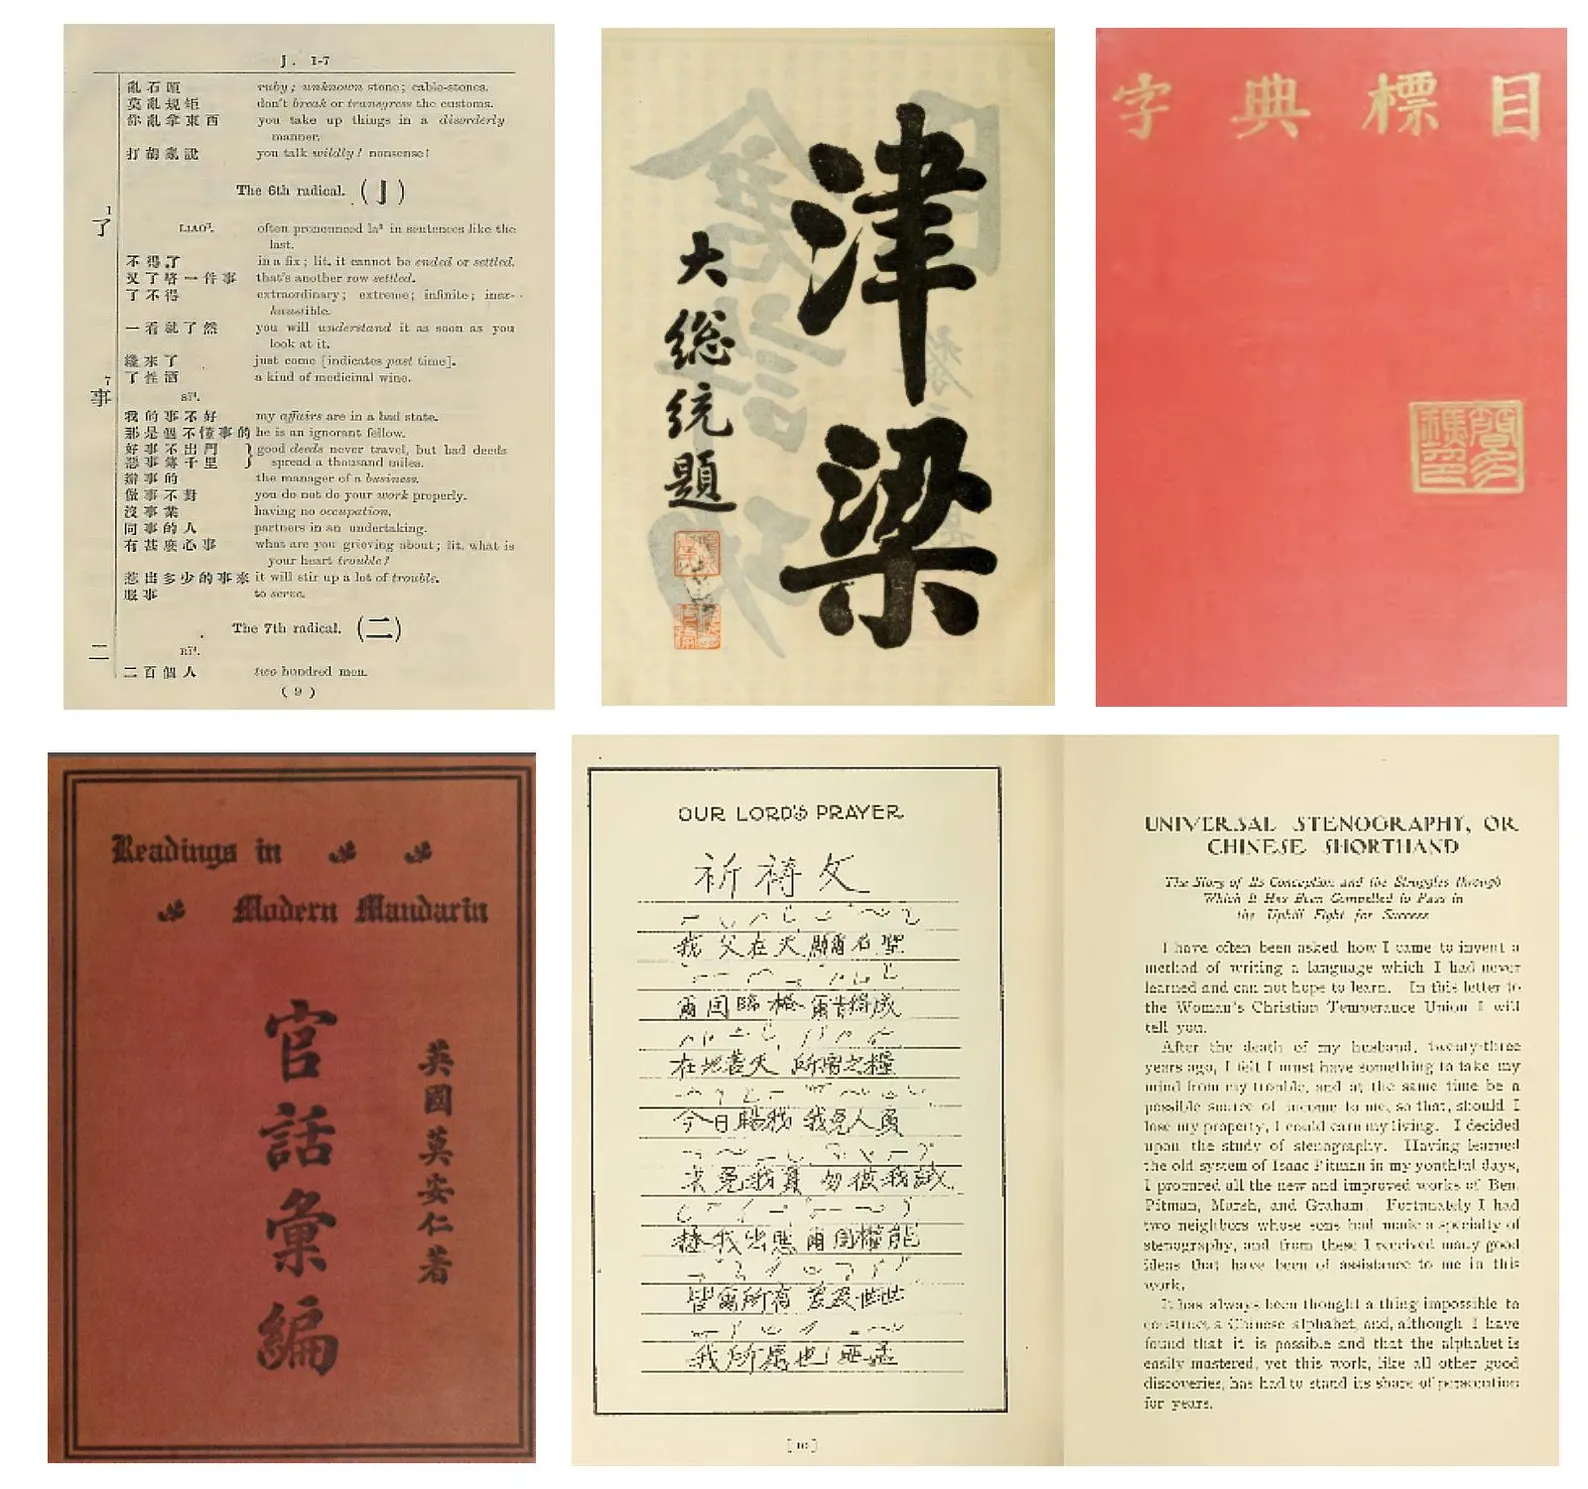 J. 1-7
亂石頭 ruby; unknown stone; cable-stones.
莫亂規矩 don't break or transgress the customs.
你亂拿東西 you take up things in a disorderly
manner.
打胡亂說 you talk wildly! nonsense!
The 6th radical. (亅)
1
了
LIAO³. often pronounced la³ in sentences like the
last.
不得了 in a fix; lit. it cannot be ended or settled.
又了咯一件事 that's another row settled.
了不得 extraordinary; extreme; infinite; inex-
haustible.
一看就了然 you will understand it as soon as you
look at it.
纔來了 just come [indicates past time].
了性酒 a kind of medicinal wine.
7
事
SÏ⁴.
我的事不好 my affairs are in a bad state.
那是個不懂事的 he is an ignorant fellow.
好事不出門 good deeds never travel, but bad deeds
惡事傳千里 spread a thousand miles.
辦事的 the manager of a business.
做事不對 you do not do your work properly.
沒事業 having no occupation.
同事的人 partners in an undertaking.
有甚麼心事 what are you grieving about; lit. what is
your heart trouble?
惹出多少的事來 it will stir up a lot of trouble.
服事 to serve.
The 7th radical. (二)
二
二百個人 two hundred men.
(9)
津梁
大總統題
字典標目
Readings in
Modern Mandarin
官話彙編
英國莫安仁著
OUR LORD'S PRAYER
祈禱文
我父在天 願爾名聖
爾囯臨格 爾旨得成
在地若天 所需之糧
今日賜我 我免人負
求免我負 勿俾我試
拯我出惡 爾囯權能
皆爾所有 爰及世世
我所願也 亞孟
[10]
UNIVERSAL STENOGRAPHY, OR
CHINESE SHORTHAND
The Story of Its Conception and the Struggles through
Which It Has Been Compelled to Pass in
the Uphill Fight for Success
I have often been asked how I came to invent a
method of writing a language which I had never
learned and can not hope to learn. In this letter to
the Woman's Christian Temperance Union I will
tell you.
After the death of my husband, twenty-three
years ago, I felt I must have something to take my
mind from my trouble, and at the same time be a
possible source of income to me, so that, should I
lose my property, I could earn my living. I decided
upon the study of stenography. Having learned
the old system of Isaac Pitman in my youthful days,
I procured all the new and improved works of Ben.
Pitman, Marsh, and Graham. Fortunately I had
two neighbors whose sons had made a specialty of
stenography, and from these I received many good
ideas that have been of assistance to me in this
work.
It has always been thought a thing impossible to
construct a Chinese alphabet, and, although I have
found that it is possible and that the alphabet is
easily mastered, yet this work, like all other good
discoveries, has had to stand its share of persecution
for years.